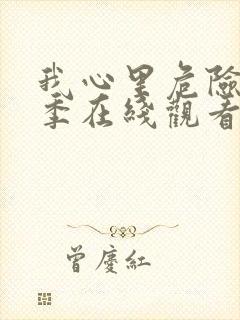 我心里危险
季在线观看
曾庆红